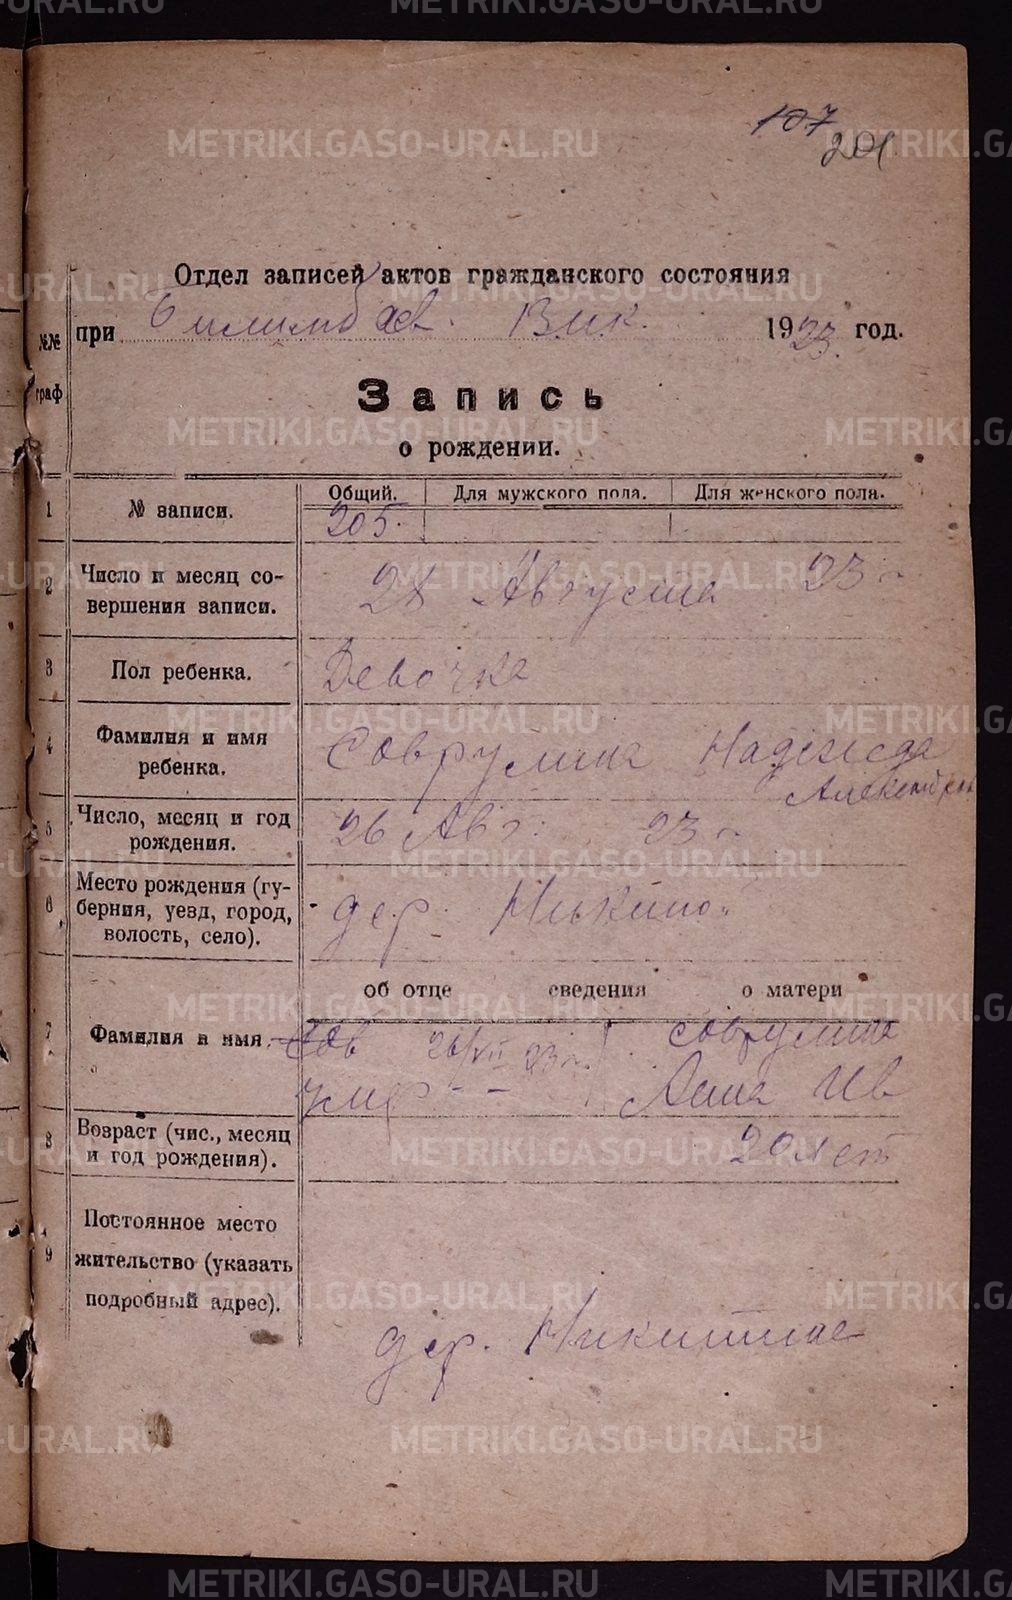 METRIKI.GASO-URAL.RU
107
201
Отдел записей актов гражданского состояния
при Билимбаев. Вик. 1923. год.
№№ граф
Запись
о рождении.
Общий. Для мужского пола. Для женского пола.
1 № записи. 205.
2 Число и месяц совершения записи. 28 Августа 23 г
3 Пол ребенка. Девочка
4 Фамилия и имя ребенка. Соврулина Надежда
Александров
5 Число, месяц и год рождения. 26 Авг. 23 г.
6 Место рождения (губерния, уезд, город, волость, село). дер. Никиной
об отце сведения о матери
7 Фамилия и имя. Сов 26/VII 23 г. Соврулина
умер - - Анна Ив
8 Возраст (чис., месяц и год рождения). 20 лет
9 Постоянное место жительство (указать подробный адрес).
дер. Никитиной